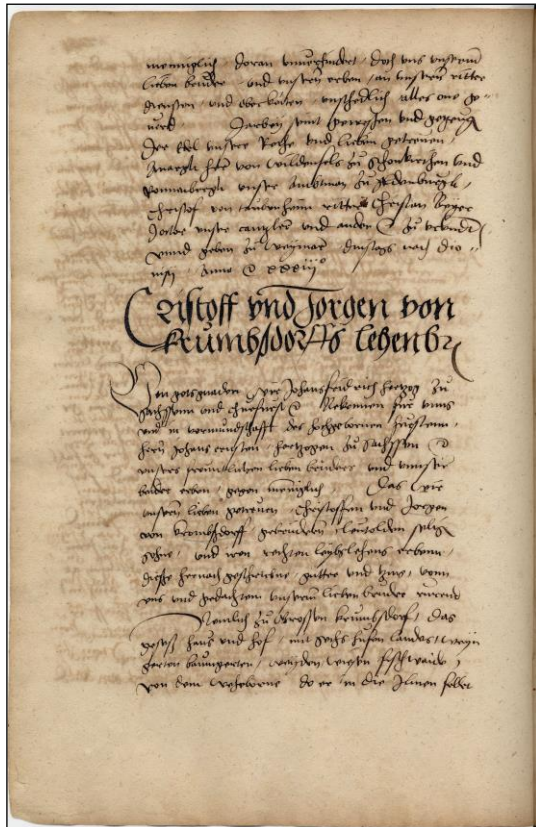 menniglich doran unverhindert, doch uns unserm
lieben bruder und unsern erben, an unsern ritter
diensten und oberkeiten unschedlich alles one ge-
verd. Hirbey seint gewessen und gezeugen
die edel unsere Rethe und lieben getreuen,
Anargk her von Wildenfels zu Schonkirchen und
Ronnenbergk unser Amtman zu Aldenburgk,
Christof von taubenheim ritter Christian Beyer
Doctor unser cantzler und ander zu urkundt
unnd geben zu Weymar dinstags nach dio-
nisy Anno xxxiii
Cristoff vnd Jorgen von
Krumbsdorffs lehenbr
Von gots gnaden wir Johansfridrich hertzog zu
Sachssenn und churfurst Bekennen fur unns
und in vormundschafft des hochgebornen fursten
hern Johans ernsten hertzogen zu Sachssen
unsers freuntlichen lieben bruders und unser
beider erben, gegen menniglich Das wir
unsern lieben getreuen Christoffen und Jorgen
von Krombsdorff gebrudern Leutolden seligen
sohne, und iren rechten leybslehens erbenn,
diesse hernach geschriebne gutter und zins, vonn
uns und gedachtem unserm lieben bruder rurend
Nemlich zu Grossen krumbsdorf, das
gesess haus und hof, mit sechs hufen landes, weyn
garten baumgarten, weyden wiesen fischweide,
von dem do er in die Ilmen fellet